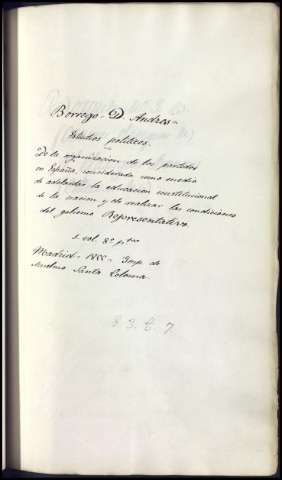 Borrego - D. Andres -
Estudios politicos.
De la organizacion de los partidos
en España, considerada como medio
de adelantar la educacion constitucional
de la nacion y de realizar las condiciones
del gobierno Representativo.
1 vol. 8º
Madrid - 1855 - Imp. de
Anselmo Santa Coloma.